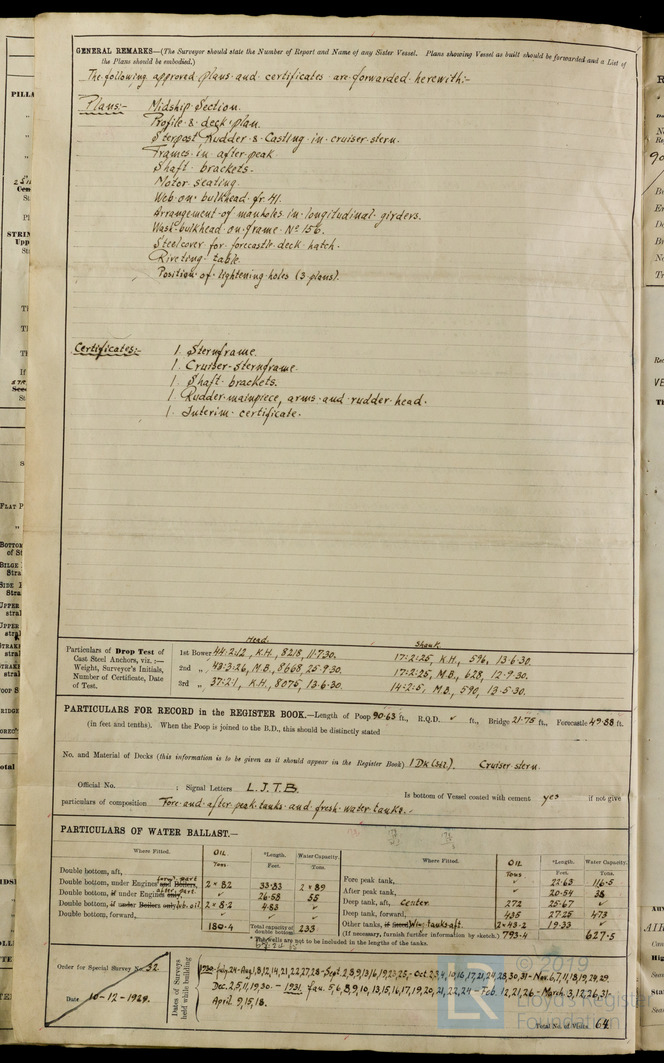 GENERAL REMARKS—(The Surveyor should state the Number of Report and Name of any Sister Vessel. Plans showing Vessel as built should be forwarded and a List of
the Plans should be embodied.)
The following approved plans and certificates are forwarded herewith:-
Plans:- Midship Section.
Profile & deck plan.
Sterpost, Rudder & Casting in cruiser stern.
Frames in after peak
Shaft brackets.
Motor seating.
Web on bulkhead fr. 41.
Arrangement of manholes in longitudinal girders.
Wash-bulkhead on frame No 156.
Steelcover for forecastle deck hatch.
Riveting table.
Position of lightening holes (3 plans).
Certificates:- 1 Sternframe.
1 Cruiser-sternframe.
1 Shaft brackets.
1 Rudder mainpiece, arms and rudder head.
1 Interim certificate.
Head. Shank.
Particulars of Drop Test of
Cast Steel Anchors, viz.:—
Weight, Surveyor's Initials,
Number of Certificate, Date
of Test.
1st Bower 44:2:12, K.H., 8218, 11·7·30. 17:2:25, K.H., 596, 13·6·30.
2nd „ 43·3·26, M.B., 8668, 25·9·30. 17:2:25, M.B., 628, 12·9·30.
3rd „ 37:2:1, K.H., 8075, 13·6·30. 14:2:5, M.B., 590, 13·5·30.
PARTICULARS FOR RECORD in the REGISTER BOOK.—Length of Poop 90·63 ft., R.Q.D. ✓ ft., Bridge 21·75 ft., Forecastle 49·88 ft.
(in feet and tenths). When the Poop is joined to the B.D., this should be distinctly stated
No. and Material of Decks (this information is to be given as it should appear in the Register Book) 1 Dk (stl). Cruiser stern.
Official No. ; Signal Letters L.J.T.B. Is bottom of Vessel coated with cement yes if not give
particulars of composition Fore and after peak tanks and fresh water tanks.
PARTICULARS OF WATER BALLAST.—
Where Fitted. OIL Tons *Length. Feet. Water Capacity. Tons.
Double bottom, aft,
Double bottom, under Engines and Boilers, forw. part 2 × 82 33·83 2 × 89
Double bottom, if under Engines only, after part ✓ 26·58 55
Double bottom, if under Boilers only, lub. oil 2 × 8·2 4·83 ✓
Double bottom, forward, ✓ ✓ ✓
180·4 Total capacity of double bottom 233
Where Fitted. OIL Tons *Length. Feet. Water Capacity. Tons.
Fore peak tank, ✓ 22·63 116·5
After peak tank, ✓ 20·54 38
Deep tank, aft, center 272 25·67 ✓
Deep tank, forward, 435 27·25 473
Other tanks, if fitted, Wing tanks aft 2×43·2 19·33
(If necessary, furnish further information by sketch.) 793·4 627·5
The wells are not to be included in the lengths of the tanks.
Order for Special Survey No. 32.
Date 10-12-1929.
Dates of Surveys
held while building
1930. July, 24 - Aug, 1, 8, 12, 14, 21, 22, 27, 28 - Sept. 2, 8, 9, 13, 16, 19, 23, 25, - Oct. 2, 3, 4, 10, 16, 17, 21, 24, 28, 30, 31 - Nov. 6, 7, 11, 18, 19, 24, 29.
Dec. 2, 5, 11, 19, 30. - 1931. Jan. 5, 6, 8, 9, 10, 13, 15, 16, 17, 19, 20, 21, 22, 24 - Feb. 12, 21, 26 - March 3, 12, 26, 31 -
April 9, 15, 18.
Total No. of Visits 64
© 2019
Lloyd's Register
Foundation